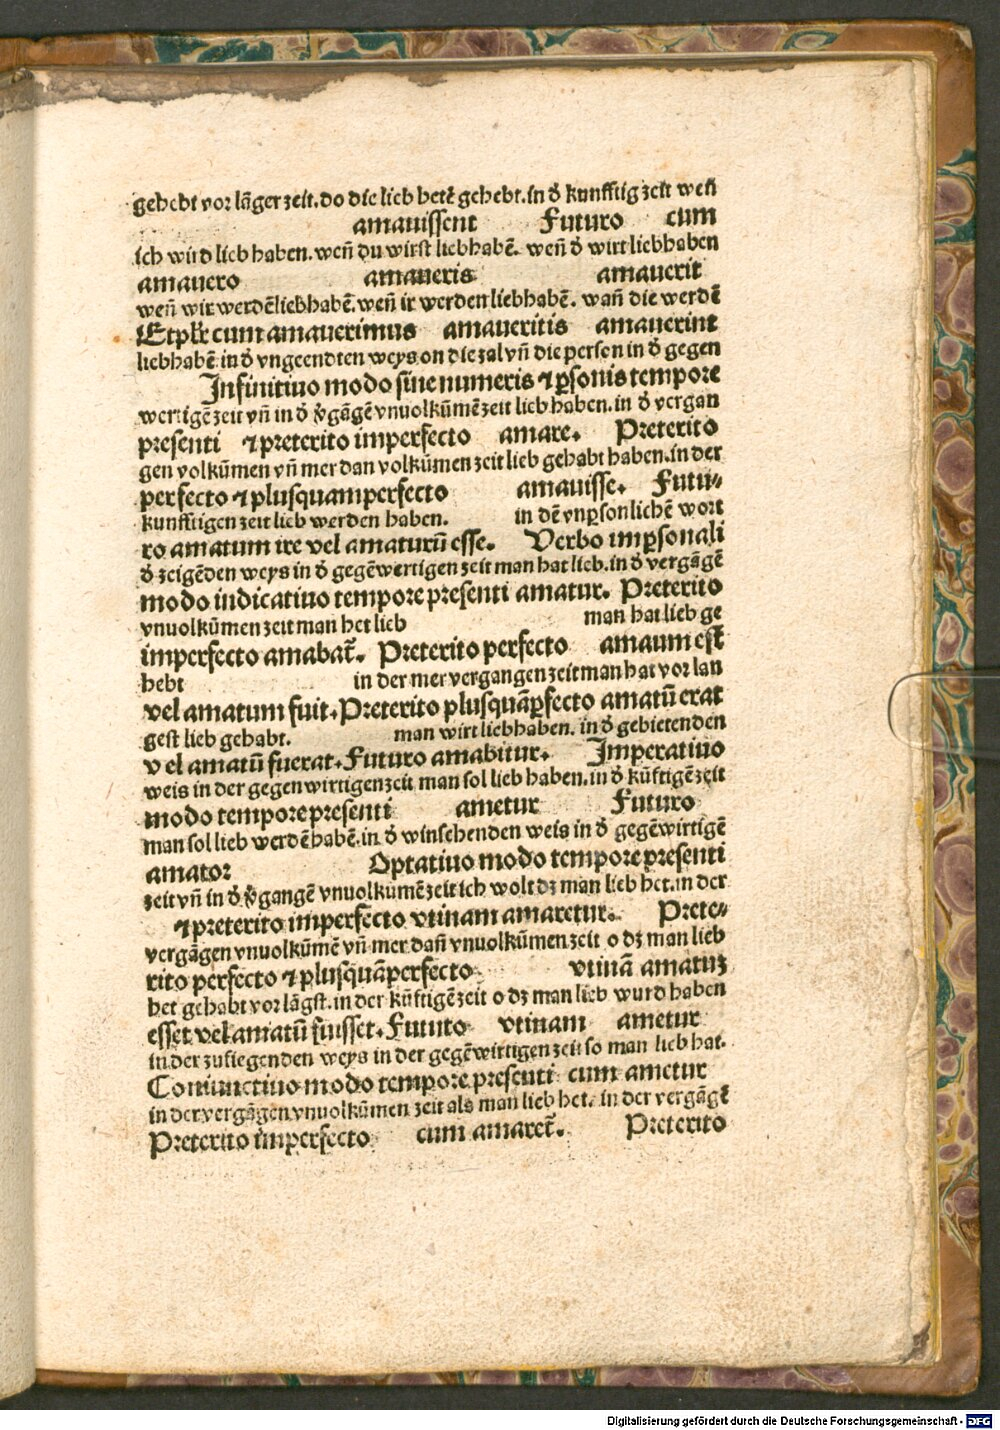 gehebt vor lãger zeit. do die lieb hetẽ gehebt. in ð kunfftig zeit weñ
amauissent Futuro cum
ich wird lieb haben. weñ du wirst liebhabẽ. weñ ð wirt liebhaben
amauero amaueris amauerit
weñ wir werdẽ liebhabẽ. weñ ir werden liebhabẽ. wañ die werdẽ
Et pl̃r cum amauerimus amaueritis amauerint
liebhabẽ in ð vngeendten weys on die zal vñ die person in ð gegen
Infinitiuo modo sine numeris ⁊ ꝑsonis tempore
wertigẽ zeit vñ in ð ṽgãgẽ vnuolkũmẽ zeit lieb haben. in ð vergan
presenti ⁊ preterito imperfecto amare. Preterito
gen volkũmen vñ mer dan volkũmen zeit lieb gehabt haben. in der
perfecto ⁊ plusquamperfecto amauisse. Futu⸗
kunfftigen zeit lieb werden haben. in dẽ vnꝑsonlichẽ wort
ro amatum ire vel amaturũ esse. Verbo imꝑsonali
ð zeigẽden weys in ð gegẽwertigen zeit man hat lieb. in ð vergãgẽ
modo indicatiuo tempore presenti amatur. Preterito
vnuolkũmen zeit man het lieb man hat lieb ge
imperfecto amabat̃. Preterito perfecto amaum est
hebt in der mer vergangen zeit man hat vor lan
vel amatum fuit. Preterito plusquãꝑfecto amatũ erat
gest lieb gehabt. man wirt liebhaben. in ð gebietenden
vel amatũ fuerat. Futuro amabitur. Imperatiuo
weis in der gegenwirtigen zeit man sol lieb haben. in ð kũftigẽ zeit
modo tempore presenti ametur Futuro
man sol lieb werdẽ habẽ. in ð winschenden weis in ð gegẽwirtigẽ
amator Optatiuo modo tempore presenti
zeit vñ in ð ṽgangẽ vnuolkũmẽ zeit ich wolt dz man lieb het. in der
⁊ preterito imperfecto vtinam amaretur. Prete⸗
vergãgen vnuolkũmẽ vñ mer dañ vnuolkũmen zeit o dz man lieb
rito perfecto ⁊ plusquãperfecto vtinã amatuz
het gehabt vor lãgst. in der kũftigẽ zeit o dz man lieb wurd haben
esset vel amatũ fuisset. Fututo vtinam ametur
in der zufiegenden weys in der gegẽwirtigen zeit so man lieb hat.
Coniunctiuo modo tempore presenti cum ametur
in der vergãgen vnuolkũmen zeit als man lieb het. in der vergãgẽ
Preterito imperfecto cum amaret̃. Preterito
Digitalisierung gefördert durch die Deutsche Forschungsgemeinschaft - DFG